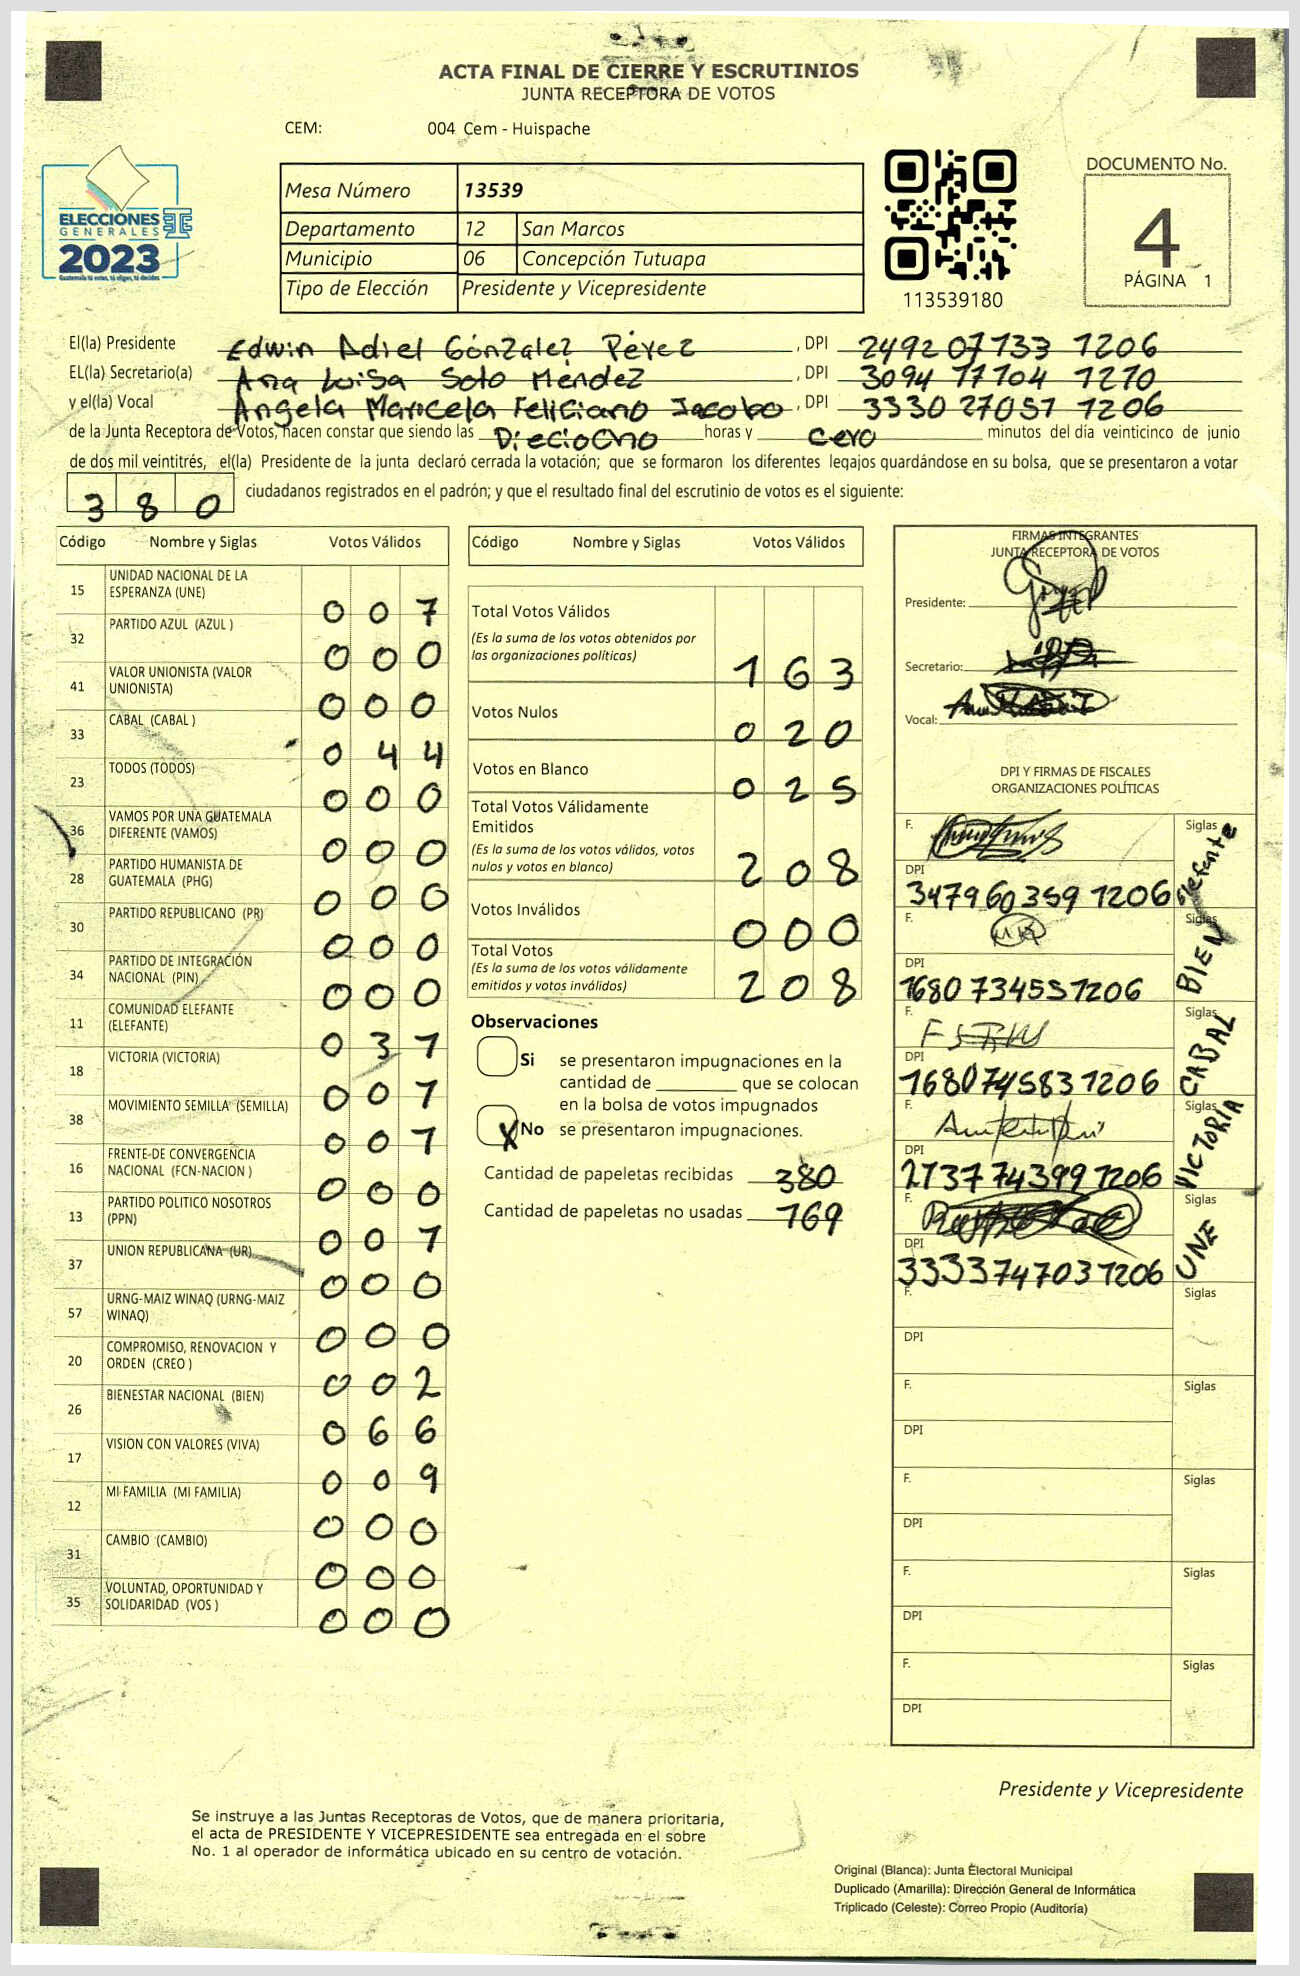 ACTA FINAL DE CIERRE Y ESCRUTINIOS
JUNTA RECEPTORA DE VOTOS
CEM: 004 Cem - Huispache
ELECCIONES
GENERALES
2023
Guatemala tú votas, tú eliges, tú decides
Mesa Número 13539
Departamento 12 San Marcos
Municipio 06 Concepción Tutuapa
Tipo de Elección Presidente y Vicepresidente
113539180
DOCUMENTO No.
4
PÁGINA 1
El(la) Presidente Edwin Adiel Gónzalez Pérez, DPI 2492 07133 1206
EL(la) Secretario(a) Ana Luisa Soto Méndez, DPI 3094 17104 1210
y el(la) Vocal Angela Maricela Feliciano Jacobo, DPI 3330 27051 1206
de la Junta Receptora de Votos, hacen constar que siendo las Dieciocho horas y cero minutos del día veinticinco de junio
de dos mil veintitrés, el(la) Presidente de la junta declaró cerrada la votación; que se formaron los diferentes legajos quardándose en su bolsa, que se presentaron a votar
380 ciudadanos registrados en el padrón; y que el resultado final del escrutinio de votos es el siguiente:
Código Nombre y Siglas Votos Válidos
15 UNIDAD NACIONAL DE LA
ESPERANZA (UNE) 007
32 PARTIDO AZUL (AZUL ) 000
41 VALOR UNIONISTA (VALOR
UNIONISTA) 000
33 CABAL (CABAL ) 044
23 TODOS (TODOS) 000
36 VAMOS POR UNA GUATEMALA
DIFERENTE (VAMOS) 000
28 PARTIDO HUMANISTA DE
GUATEMALA (PHG) 000
30 PARTIDO REPUBLICANO (PR) 000
34 PARTIDO DE INTEGRACIÓN
NACIONAL (PIN) 000
11 COMUNIDAD ELEFANTE
(ELEFANTE) 031
18 VICTORIA (VICTORIA) 001
38 MOVIMIENTO SEMILLA (SEMILLA) 001
16 FRENTE DE CONVERGENCIA
NACIONAL (FCN-NACION ) 000
13 PARTIDO POLITICO NOSOTROS
(PPN) 001
37 UNION REPUBLICANA (UR) 000
57 URNG-MAIZ WINAQ (URNG-MAIZ
WINAQ) 000
20 COMPROMISO, RENOVACION Y
ORDEN (CREO ) 002
26 BIENESTAR NACIONAL (BIEN) 066
17 VISION CON VALORES (VIVA) 009
12 MI FAMILIA (MI FAMILIA) 000
31 CAMBIO (CAMBIO) 000
35 VOLUNTAD, OPORTUNIDAD Y
SOLIDARIDAD (VOS ) 000
Código Nombre y Siglas Votos Válidos
Total Votos Válidos 163
(Es la suma de los votos obtenidos por
las organizaciones políticas)
Votos Nulos 020
Votos en Blanco 025
Total Votos Válidamente
Emitidos 208
(Es la suma de los votos válidos, votos
nulos y votos en blanco)
Votos Inválidos 000
Total Votos 208
(Es la suma de los votos válidamente
emitidos y votos inválidos)
Observaciones
Si se presentaron impugnaciones en la
cantidad de ________ que se colocan
en la bolsa de votos impugnados
X No se presentaron impugnaciones.
Cantidad de papeletas recibidas 380
Cantidad de papeletas no usadas 169
FIRMAS INTEGRANTES
JUNTA RECEPTORA DE VOTOS
Presidente:
Secretario:
Vocal:
DPI Y FIRMAS DE FISCALES
ORGANIZACIONES POLÍTICAS
F. Siglas Elefante
DPI 3479 60359 1206
F. Siglas BIEN
DPI 1680 73455 1206
F. Siglas CABAL
DPI 1680 74583 1206
F. Siglas VICTORIA
DPI 2137 74399 1206
F. Siglas UNE
DPI 3333 74703 1206
F. Siglas
DPI
F. Siglas
DPI
F. Siglas
DPI
F. Siglas
DPI
F. Siglas
DPI
Presidente y Vicepresidente
Se instruye a las Juntas Receptoras de Votos, que de manera prioritaria,
el acta de PRESIDENTE Y VICEPRESIDENTE sea entregada en el sobre
No. 1 al operador de informática ubicado en su centro de votación.
Original (Blanca): Junta Electoral Municipal
Duplicado (Amarilla): Dirección General de Informática
Triplicado (Celeste): Correo Propio (Auditoría)